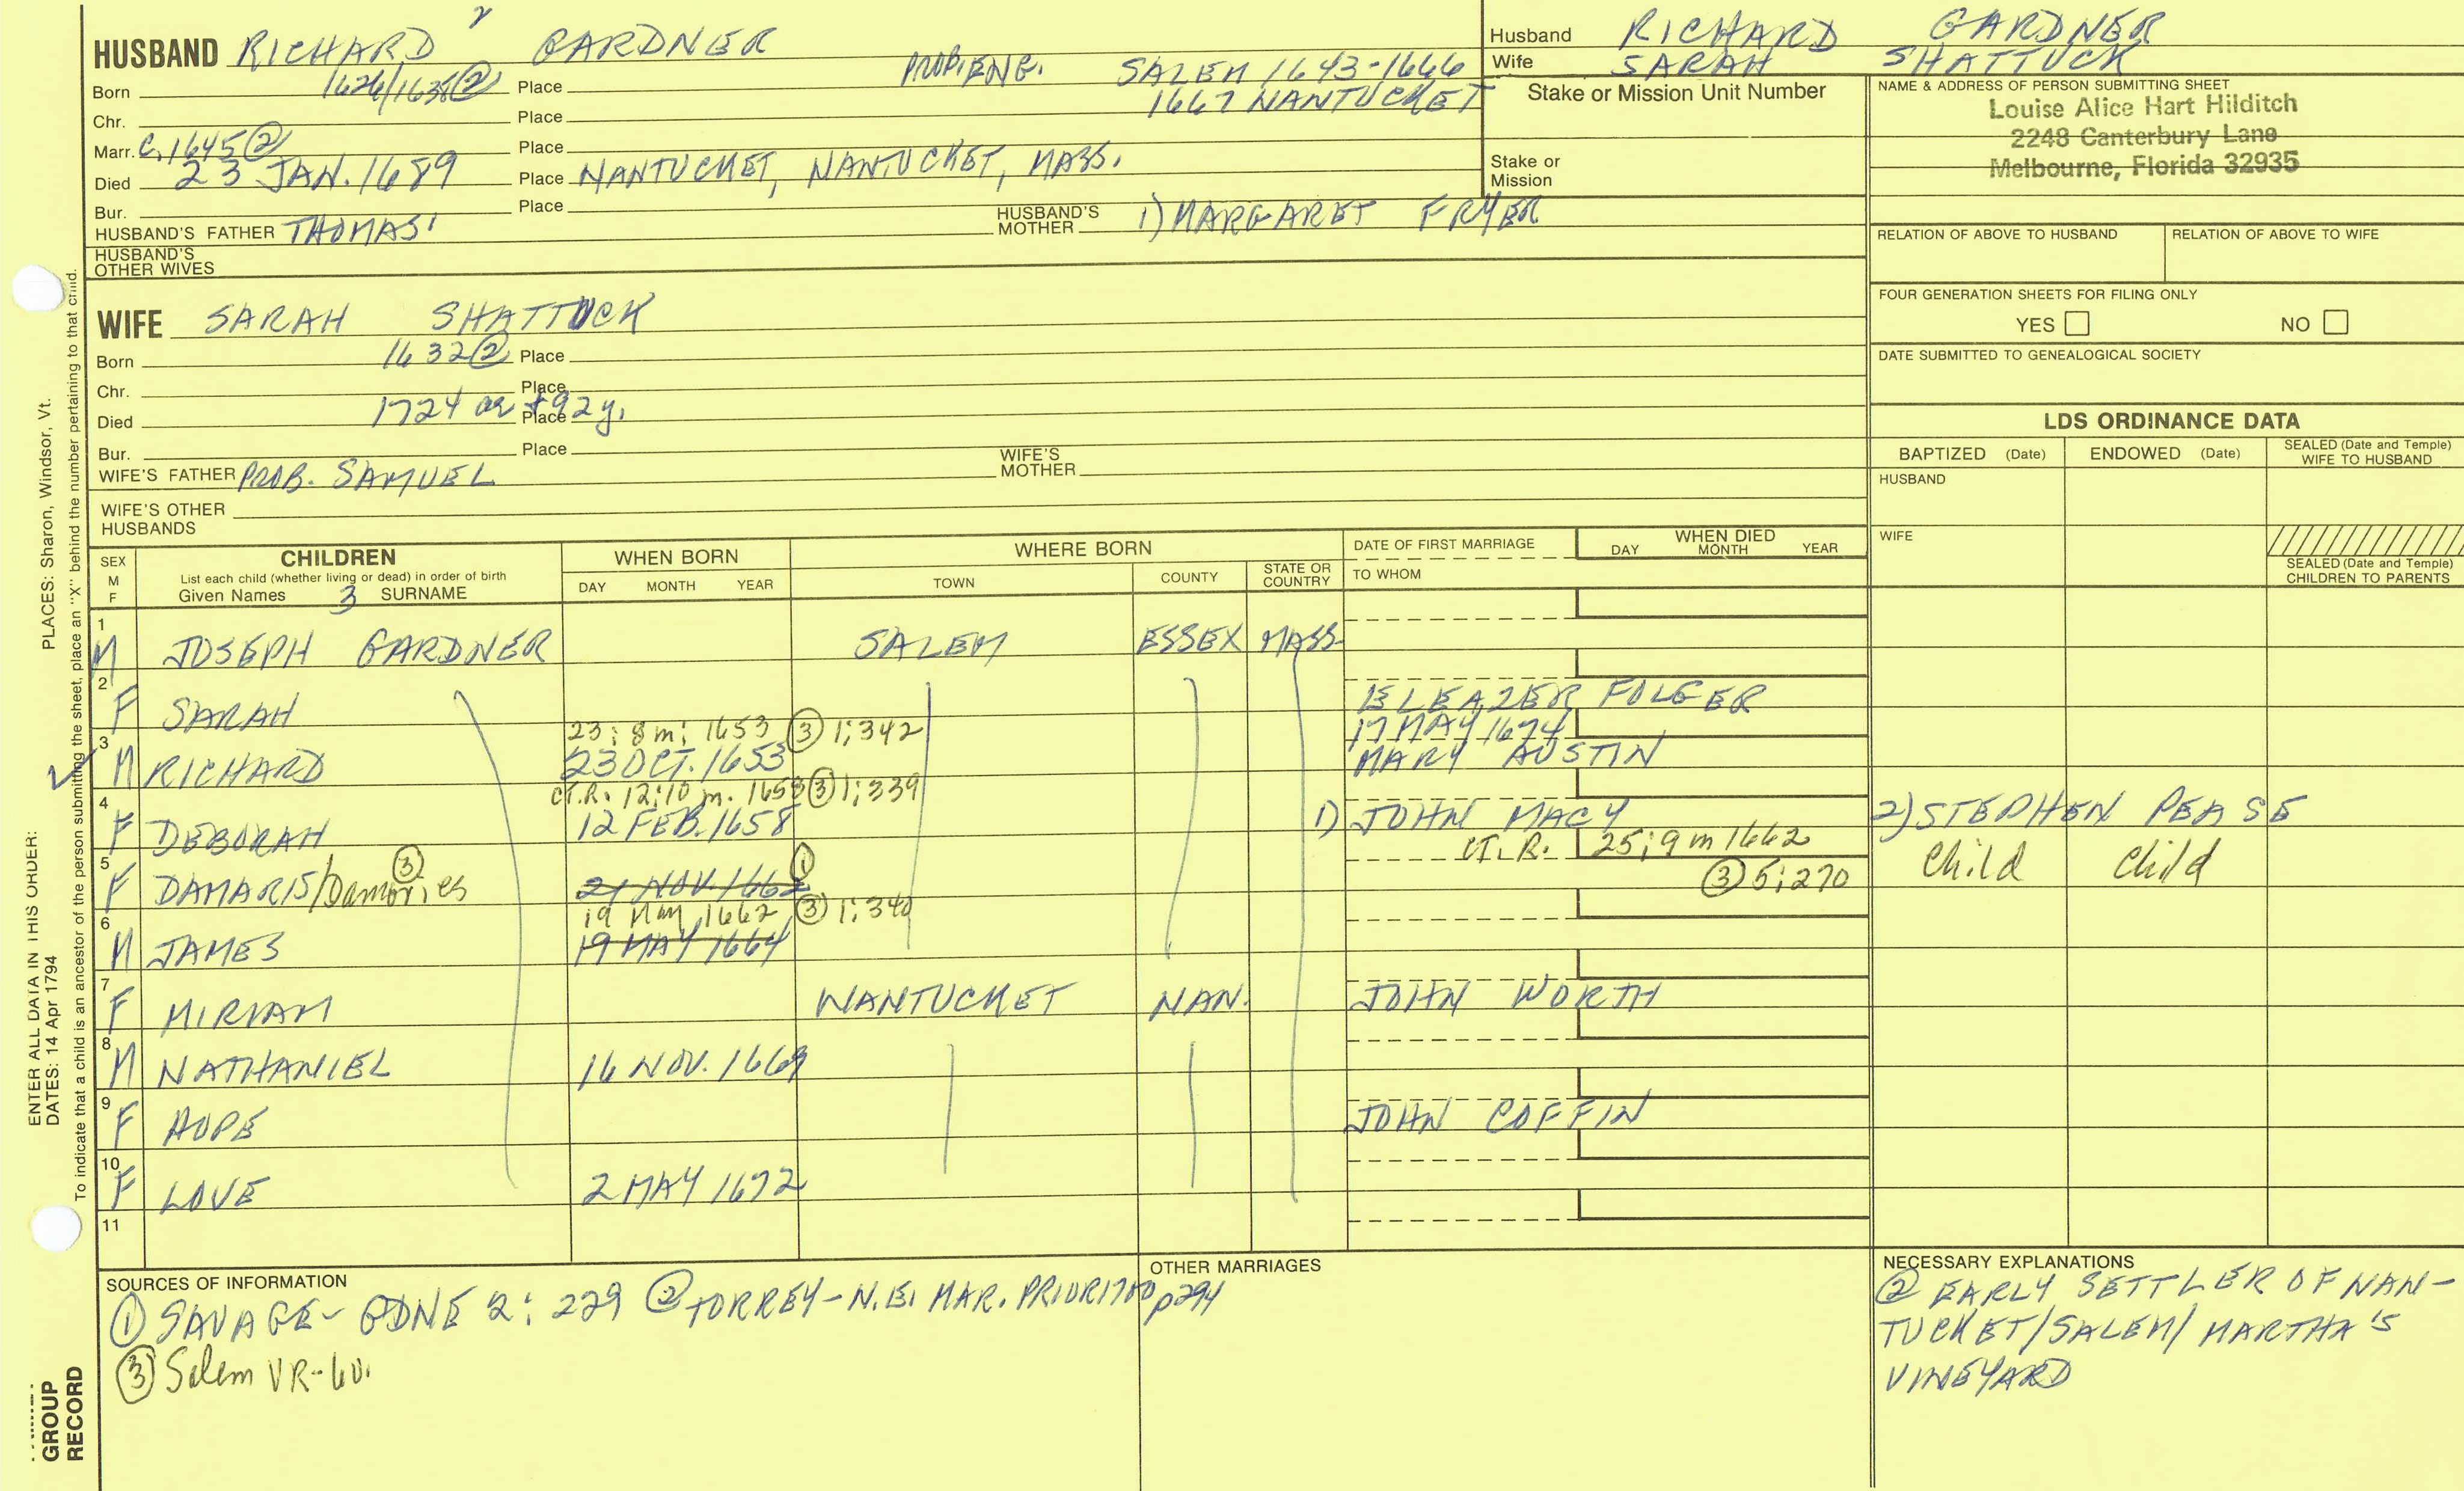 HUSBAND RICHARD 2 GARDNER
Born 1626/1638② Place PROB. ENG. SALEM 1643-1666
1667 NANTUCKET
Chr. Place
Marr. C. 1645② Place
Died 23 JAN. 1689 Place NANTUCKET, NANTUCKET, MASS.
Bur. Place
HUSBAND'S FATHER THOMAS1 HUSBAND'S MOTHER 1) MARGARET FRYER
HUSBAND'S OTHER WIVES
Husband RICHARD GARDNER
Wife SARAH SHATTUCK
Stake or Mission Unit Number
Stake or Mission
NAME & ADDRESS OF PERSON SUBMITTING SHEET
Louise Alice Hart Hilditch
2248 Canterbury Lane
Melbourne, Florida 32935
RELATION OF ABOVE TO HUSBAND RELATION OF ABOVE TO WIFE
FOUR GENERATION SHEETS FOR FILING ONLY
YES NO
DATE SUBMITTED TO GENEALOGICAL SOCIETY
WIFE SARAH SHATTUCK
Born 1632② Place
Chr. Place
Died 1724 ae +92y. Place
Bur. Place
WIFE'S FATHER PROB. SAMUEL WIFE'S MOTHER
WIFE'S OTHER HUSBANDS
LDS ORDINANCE DATA
BAPTIZED (Date) ENDOWED (Date) SEALED (Date and Temple) WIFE TO HUSBAND
HUSBAND
WIFE
SEALED (Date and Temple) CHILDREN TO PARENTS
SEX M F
CHILDREN
List each child (whether living or dead) in order of birth
Given Names 3 SURNAME
WHEN BORN
DAY MONTH YEAR
WHERE BORN
TOWN COUNTY STATE OR COUNTRY
DATE OF FIRST MARRIAGE
TO WHOM
WHEN DIED
DAY MONTH YEAR
1 M JOSEPH GARDNER SALEM ESSEX MASS
2 F SARAH ELEAZER FOLGER
23: 8m: 1653 ③ 1:342 17 MAY 1674
3 M RICHARD 23 OCT. 1653 MARY AUSTIN
CT.R. 12:10 m. 1658 ③ 1:339
4 F DEBORAH 12 FEB. 1658 1) JOHN MACY 2) STEPHEN PEASE
CT. R. 25:9m 1662
5 F DAMARIS/Damories ③ 21 NOV. 1662 ① ③ 5:270 Child Child
19 May 1662 ③ 1:340
6 M JAMES 19 MAY 1664
7 F MIRIAM NANTUCKET NAN. JOHN WORTH
8 M NATHANIEL 16 NOV. 1669
9 F HOPE JOHN COFFIN
10 F LOVE 2 MAY 1672
11
SOURCES OF INFORMATION
① SAVAGE- GDNE 2: 229 ② TORREY- N.E. MAR. PRIOR 1700 p294
③ Salem VR-6v.
OTHER MARRIAGES
NECESSARY EXPLANATIONS
② EARLY SETTLER OF NAN-
TUCKET/SALEM/MARTHA'S
VINEYARD
ENTER ALL DATA IN THIS ORDER:
DATES: 14 Apr 1794
PLACES: Sharon, Windsor, Vt.
To indicate that a child is an ancestor of the person submitting the sheet, place an "X" behind the number pertaining to that child.
GROUP
RECORD